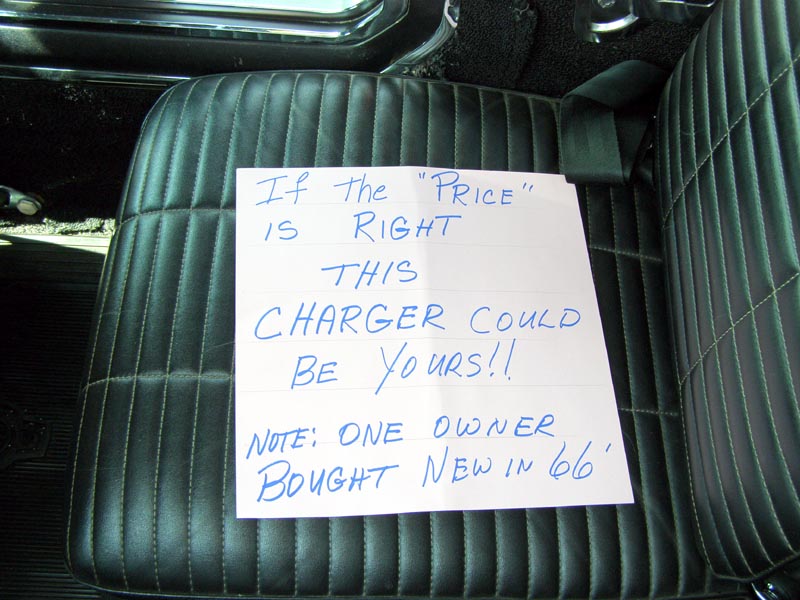 If The "PRICE"
IS RIGHT
THIS
CHARGER COULD
BE YOURS!!
NOTE: ONE OWNER
BOUGHT NEW IN 66'